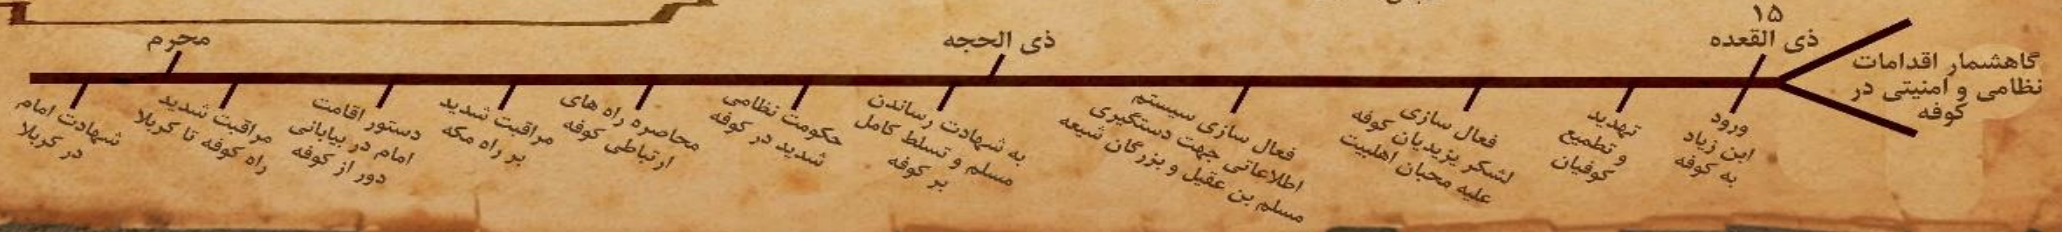 گاهشمار اقدامات
نظامی و امنیتی در
کوفه
۱۵
ذی القعده
ورود
ابن زیاد
به کوفه
تهدید
و تطمیع
کوفیان
فعال سازی
لشکر یزیدیان کوفه
علیه محبان اهلبیت
فعال سازی سیستم
اطلاعاتی جهت دستگیری
مسلم بن عقیل و بزرگان شیعه
ذی الحجه
به شهادت رساندن
مسلم و تسلط کامل
بر کوفه
حکومت نظامی
شدید در کوفه
محاصره راه های
ارتباطی کوفه
مراقبت شدید
بر راه مکه
دستور اقامت
امام در بیابانی
دور از کوفه
مراقبت شدید
راه کوفه تا کربلا
محرم
شهادت امام
در کربلا